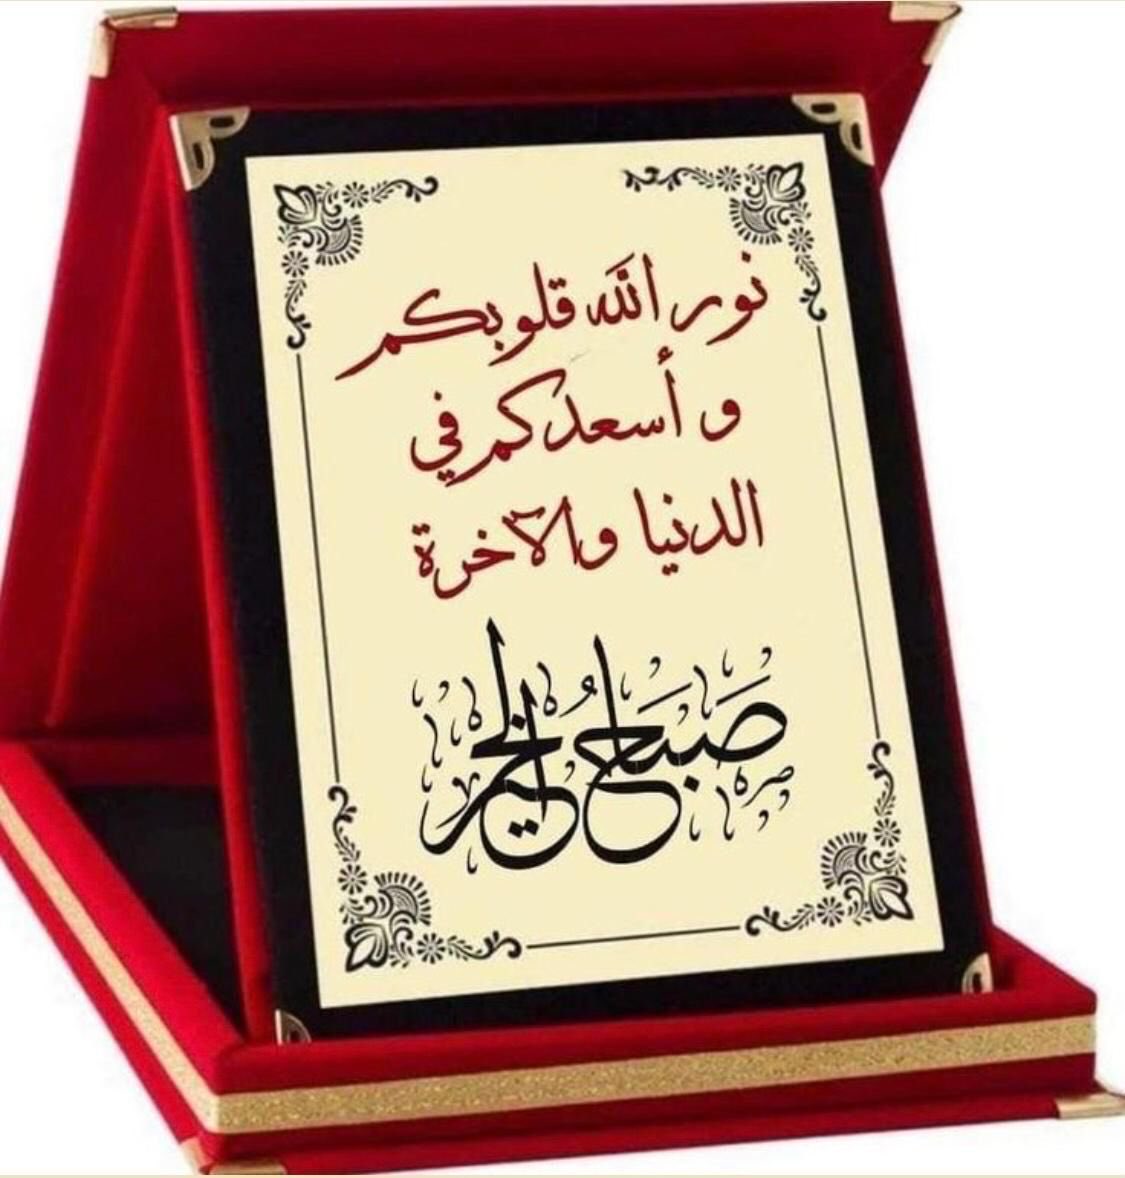 نور الله قلوبكم
و أسعدكم في
الدنيا والآخرة
صباح الخير